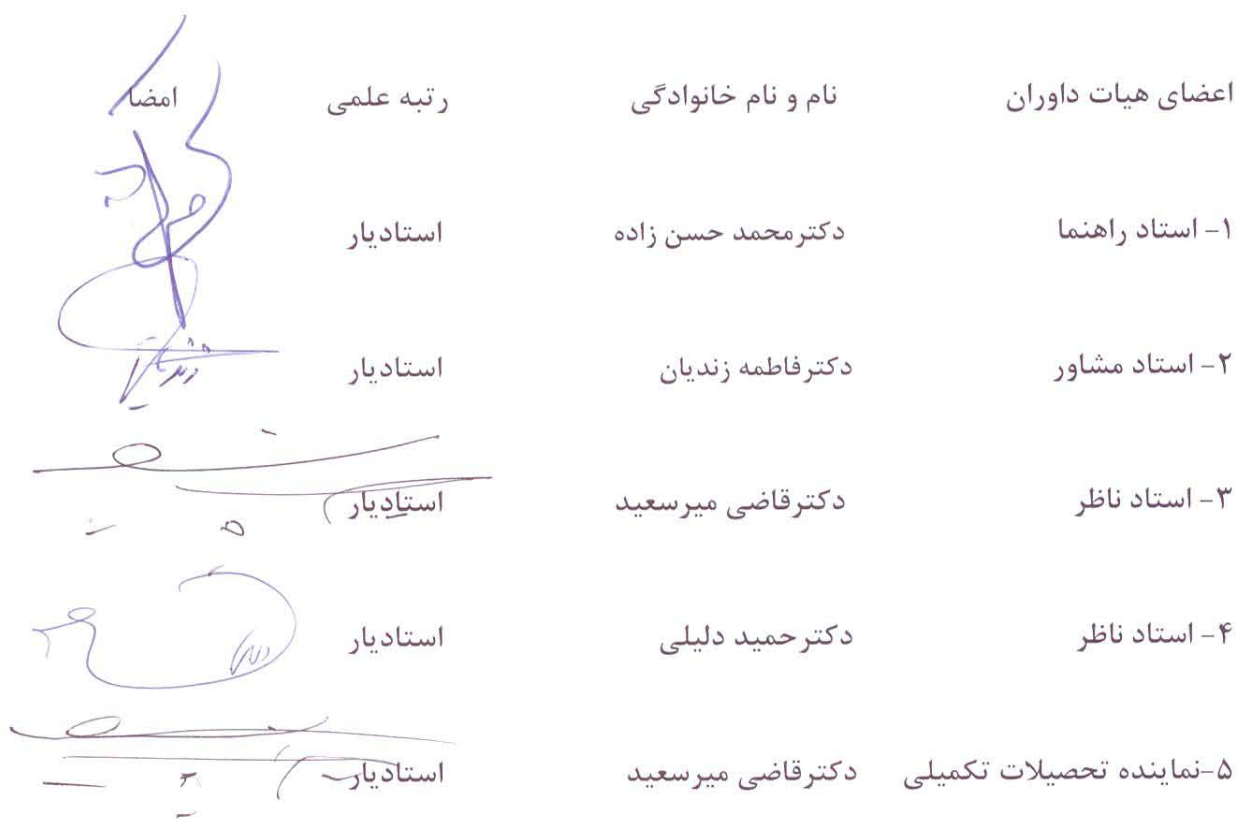 اعضای هیات داوران نام و نام خانوادگی رتبه علمی امضا
۱- استاد راهنما دکترمحمد حسن زاده استادیار
۲- استاد مشاور دکترفاطمه زندیان استادیار
۳- استاد ناظر دکترقاضی میرسعید استادیار
۴- استاد ناظر دکترحمید دلیلی استادیار
۵-نماینده تحصیلات تکمیلی دکترقاضی میرسعید استادیار